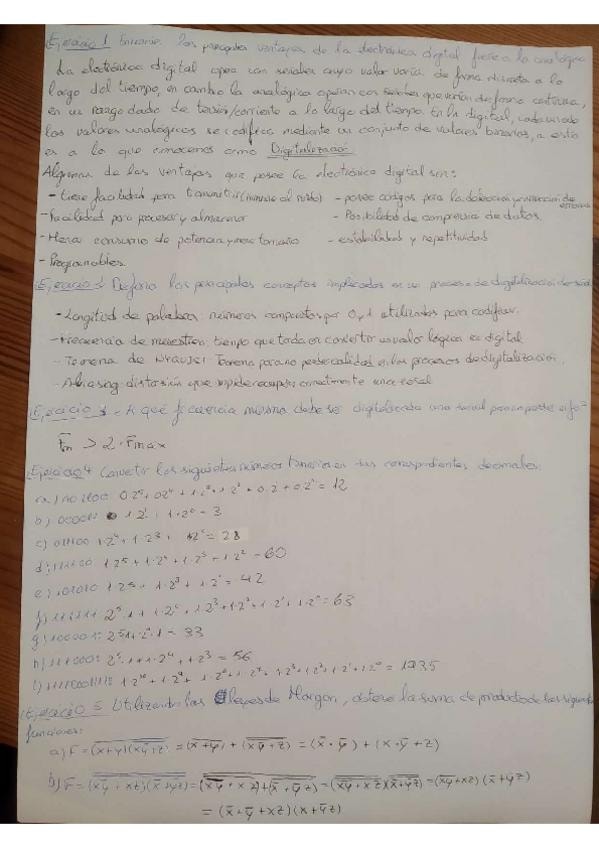 Ejercicio 1 Enumerar las principales ventajas de la electrónica digital frente a la analógica
La electrónica digital opera con señales cuyo valor varía de forma discreta a lo
largo del tiempo, en cambio la analógica operan con señales que varían de forma continua,
en un rango dado de tensión/corriente a lo largo del tiempo. En la digital, cada uno de
los valores analógicos se codifica mediante un conjunto de valores binarios, a esto
es a lo que conocemos como Digitalización.
Algunas de las ventajas que posee la electrónica digital son:
- tiene facilidad para transmitir (inmune al ruido) - posee códigos para la detección y corrección de errores
- Facilidad para procesar y almacenar - Posibilidad de compresión de datos.
- Menor consumo de potencia y menor tamaño - estabilidad y repetitividad
- Programables
Ejercicio 2 Defina los principales conceptos implicados en un proceso de digitalización de señal
- Longitud de palabra: números compuestos por 0 y 1 utilizados para codificar.
- Frecuencia de muestreo: tiempo que tarda en convertir un valor lógico en digital
- Teorema de Nyquist: Teorema para no perder calidad en los procesos de digitalización.
- Aliasing: distorsión que impide recuperar correctamente una señal
Ejercicio 3 - A qué frecuencia mínima debe ser digitalizada una señal para no perder info?
Fm > 2 · Fmax
Ejercicio 4 Convertir los siguientes números binarios en sus correspondientes decimales:
= 12
b) 000011: 1·2¹ + 1·2⁰ = 3
c) 011100 1·2⁴ + 1·2³ + 1·2² = 28
d) 111100 1·2⁵ + 1·2⁴ + 1·2³ + 1·2² = 60
e) 101010 1·2⁵ + 1·2³ + 1·2¹ = 42
f) 111111 2⁵·1 + 1·2⁴ + 1·2³ + 1·2² + 1·2¹ + 1·2⁰ = 63
g) 100001: 2⁵·1 + 2⁰·1 = 33
h) 111000: 2⁵·1 + 1·2⁴ + 1·2³ = 56
= 1935
Ejercicio 5 Utilizando las leyes de Morgan, obtener la suma de productos de las siguientes
funciones:
a) F =
b) F =